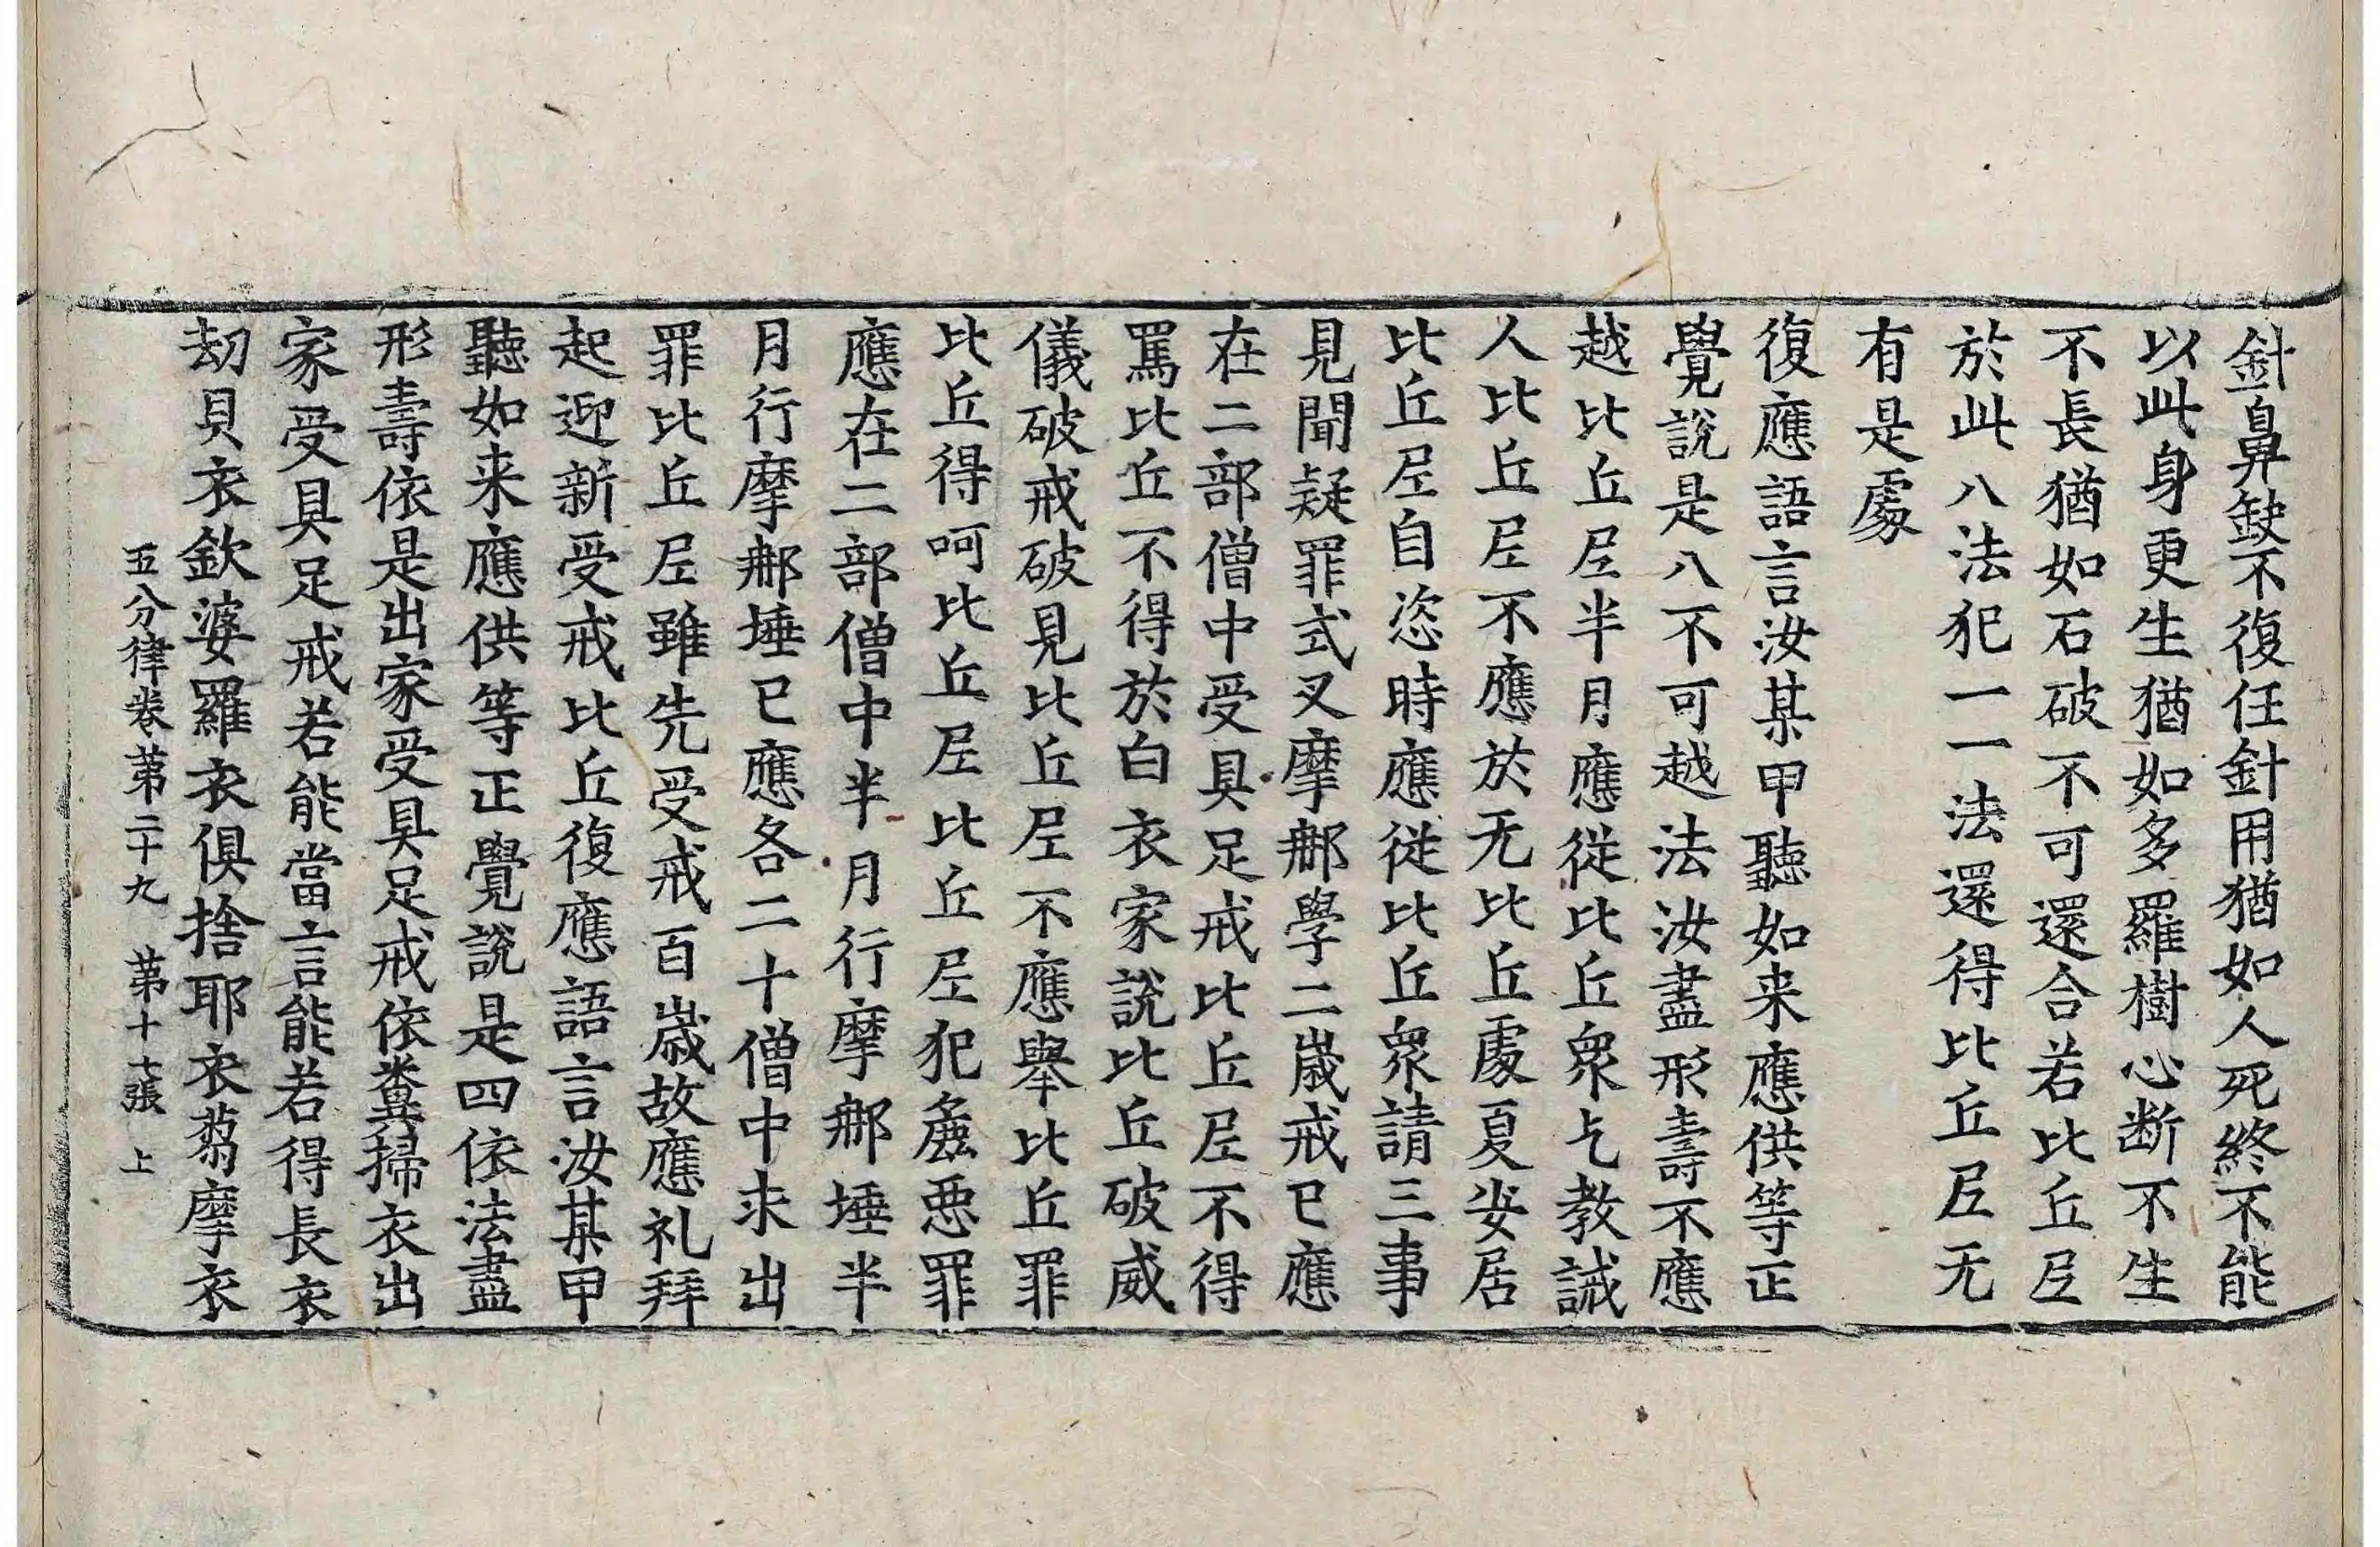 針鼻缺不復任針用猶如人死終不能
以此身更生猶如多羅樹心断不生
不長猶如石破不可還合若比丘尼
於此八法犯一一法還得比丘尼无
有是處
復應語言汝某甲聽如来應供等正
覺說是八不可越法汝盡形壽不應
越比丘尼半月應從比丘衆乞教誡
人比丘尼不應於无比丘處夏安居
比丘尼自恣時應從比丘衆請三事
見聞疑罪式叉摩那學二歲戒已應
在二部僧中受具足戒比丘尼不得
罵比丘不得於白衣家說比丘破威
儀破戒破見比丘尼不應舉比丘罪
比丘得呵比丘尼比丘尼犯麁惡罪
應在二部僧中半月行摩那埵半
月行摩那埵已應各二十僧中求出
罪比丘尼雖先受戒百歲故應礼拜
起迎新受戒比丘復應語言汝某甲
聽如来應供等正覺說是四依法盡
形壽依是出家受具足戒依糞掃衣出
家受具足戒若能當言能若得長衣
劫貝衣欽婆羅衣俱捨耶衣芻摩衣
五分律卷第二十九 第十七張 上